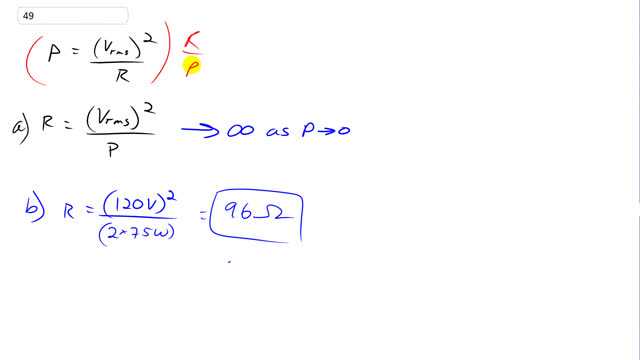 49
(P = (Vrms)²/R) R/P
a) R = (Vrms)²/P → ∞ as P→0
b) R = (120V)²/(2×75W) = 96Ω